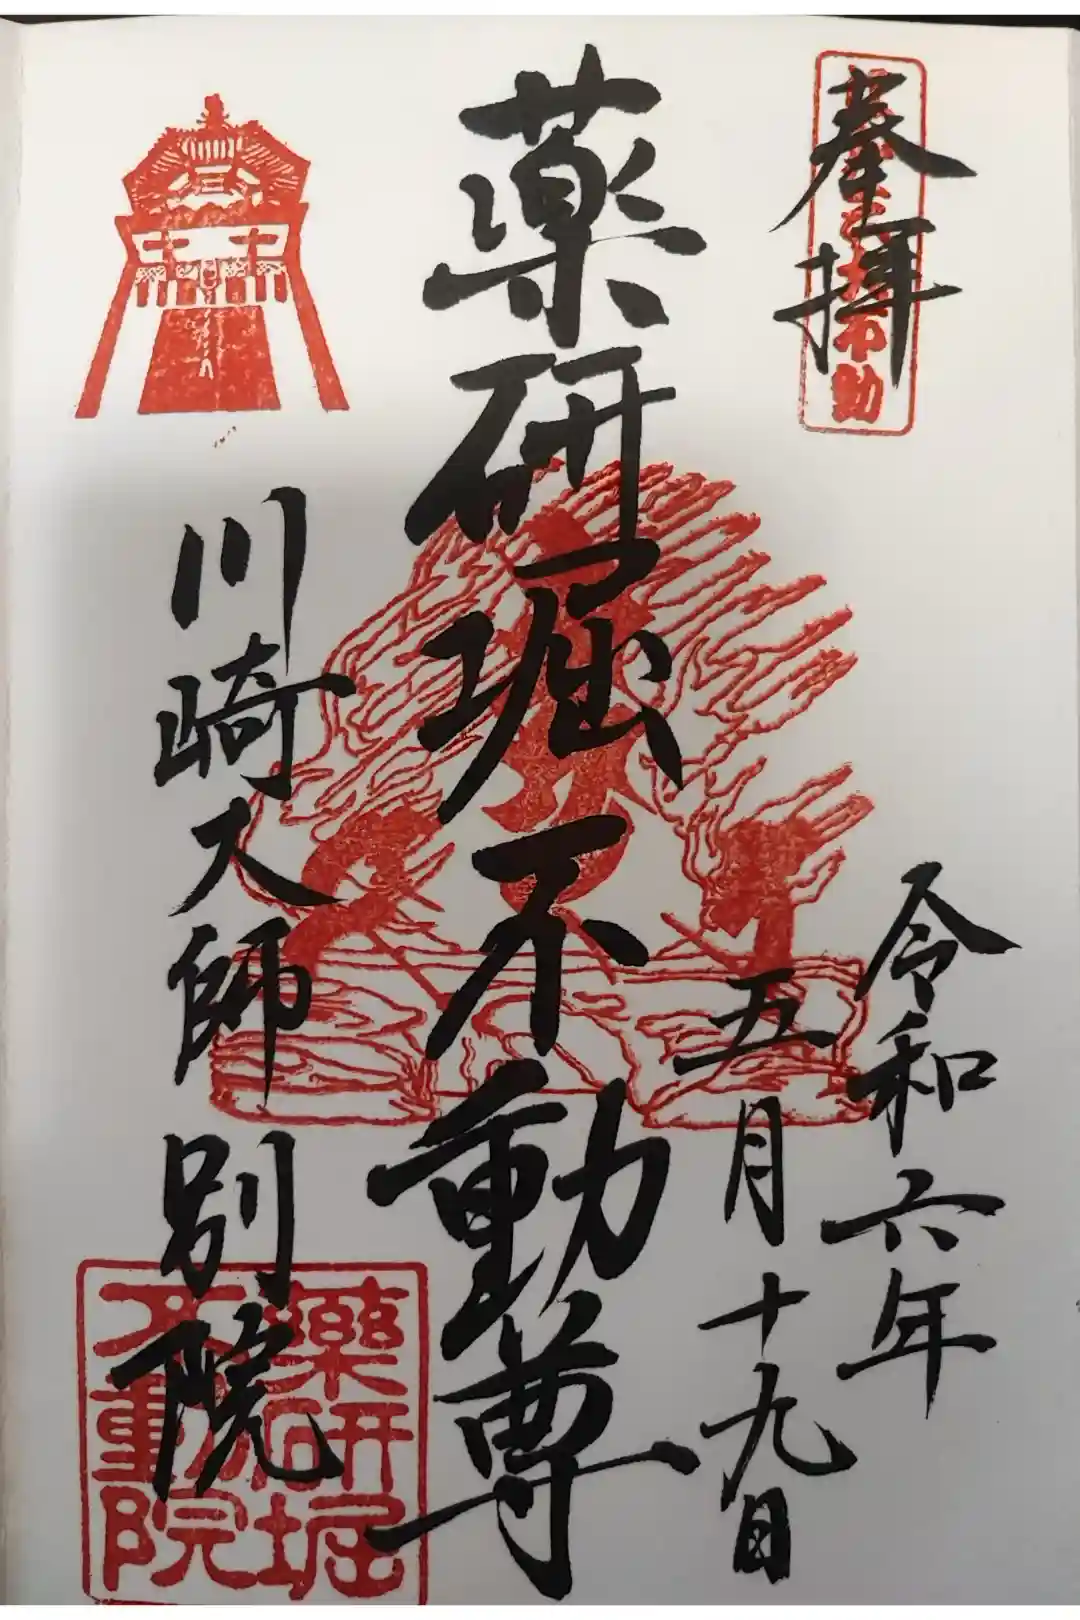 奉拝
令和六年
五月十九日
薬研堀不動尊
川崎大師別院
薬研堀
不動院